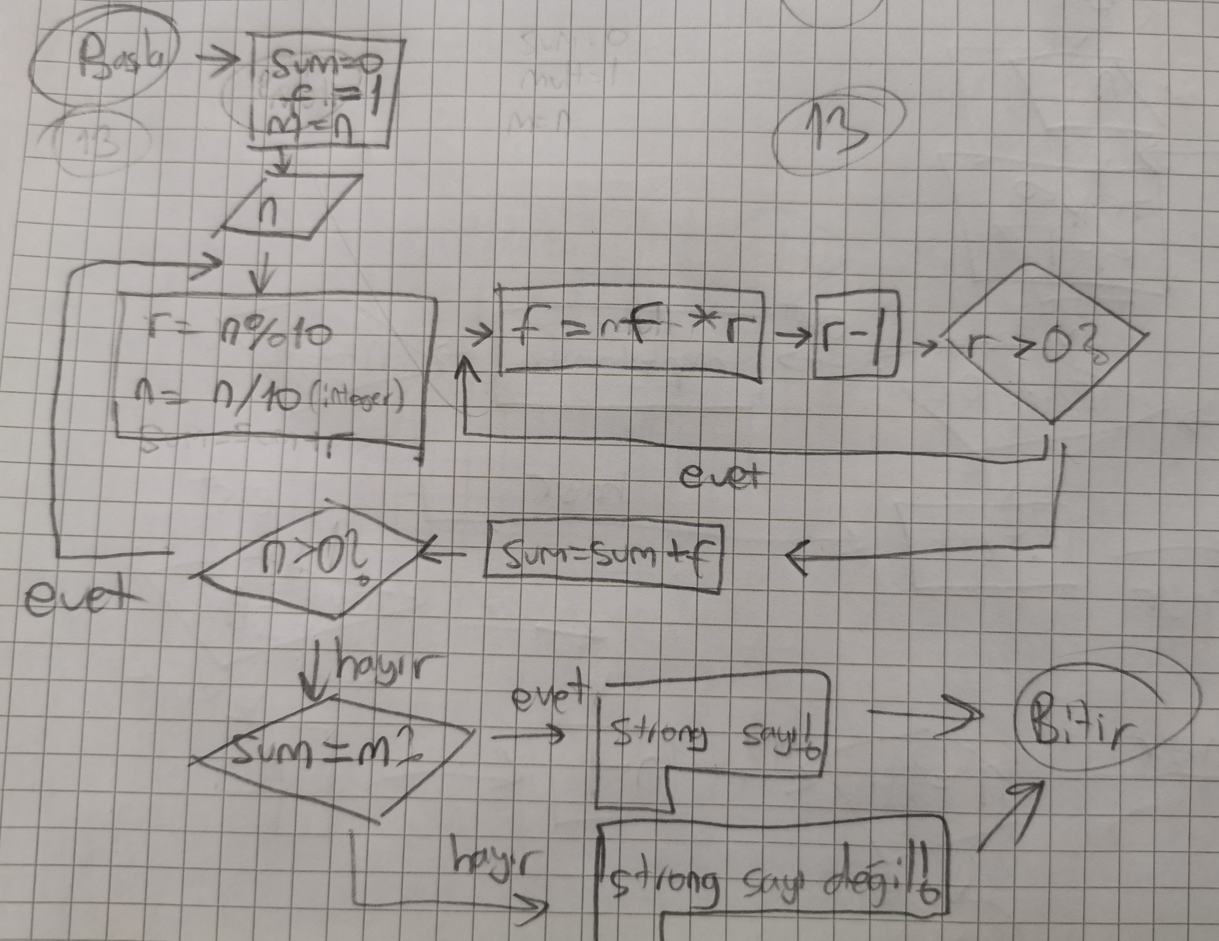 Başla
sum=0
f=1
m=n
13
13
n
r= n%10
n= n/10 (integer)
f = f * r
r-1
r>0?
evet
n>0?
sum=sum+f
evet
hayır
sum=m?
evet
Strong sayı!
Bitir
hayır
Strong sayı değil!